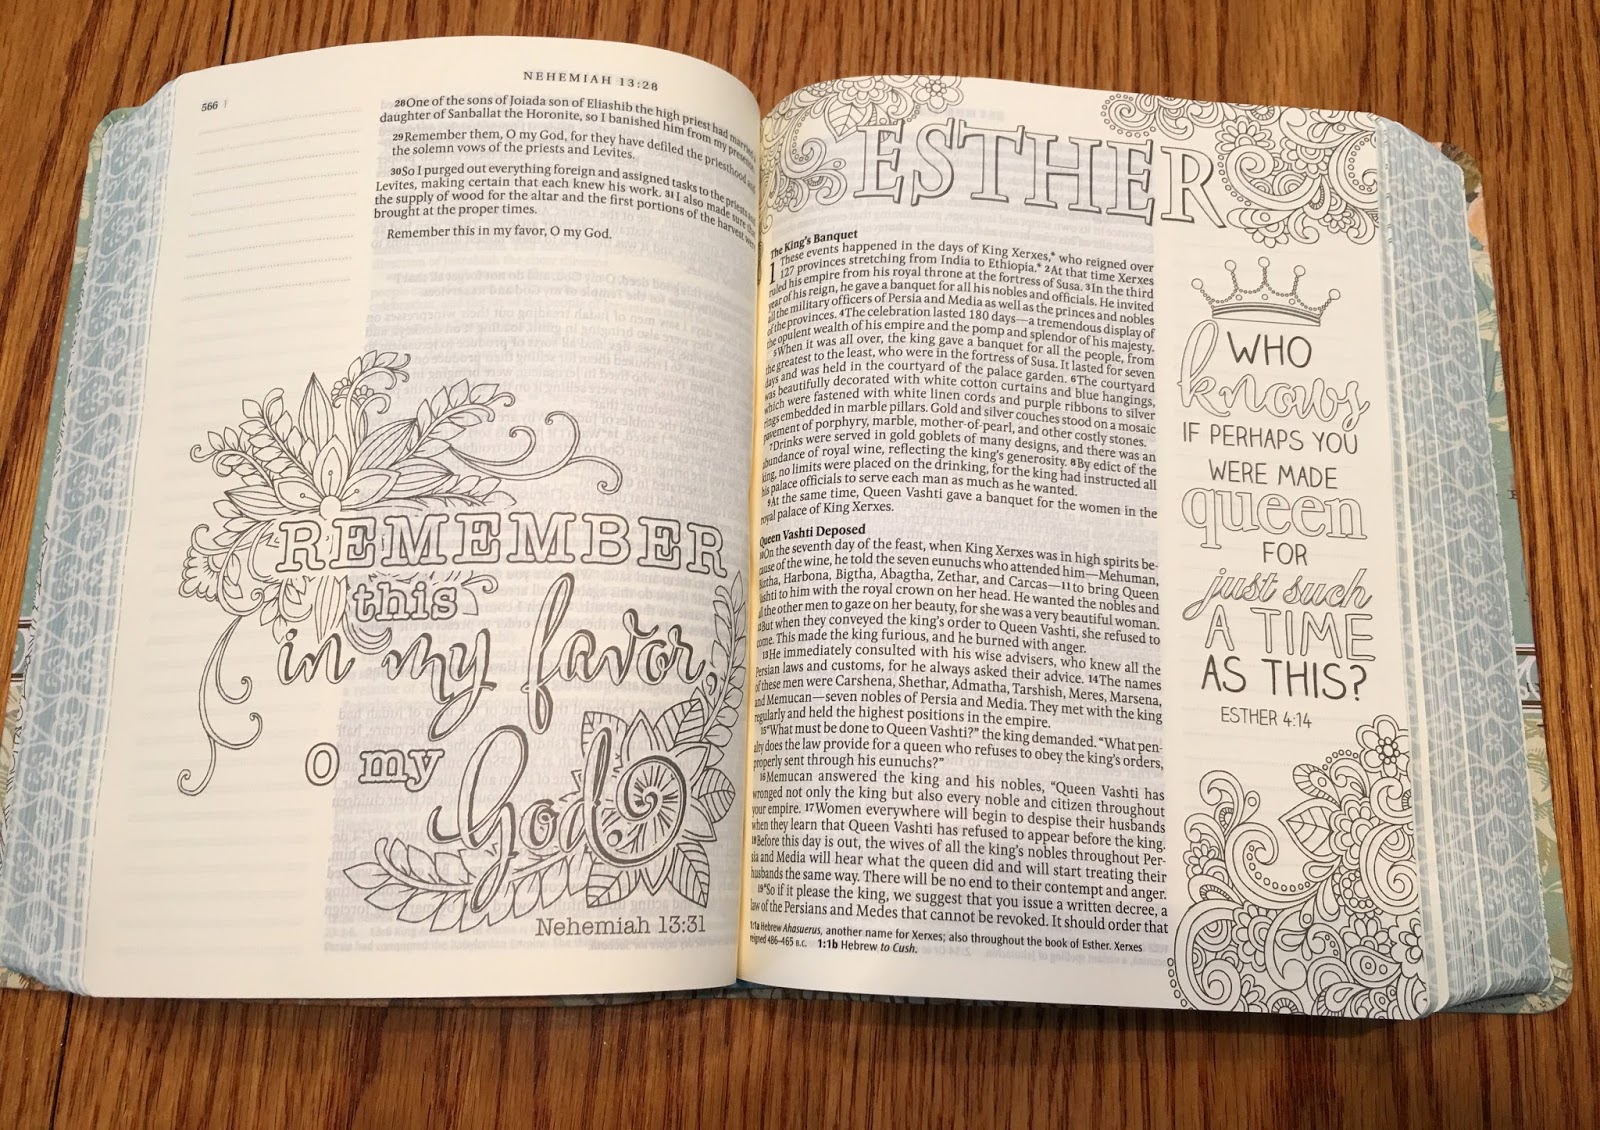 566
NEHEMIAH 13:28
28One of the sons of Joiada son of Eliashib the high priest had married a
daughter of Sanballat the Horonite, so I banished him from my presence.
29Remember them, O my God, for they have defiled the priesthood and
the solemn vows of the priests and Levites.
30So I purged out everything foreign and assigned tasks to the priests and
Levites, making certain that each knew his work. 31I also made sure that
the supply of wood for the altar and the first portions of the harvest were
brought at the proper times.
Remember this in my favor, O my God.
REMEMBER
this
in my favor,
O my
God
Nehemiah 13:31
ESTHER
The King's Banquet
1 These events happened in the days of King Xerxes,* who reigned over
127 provinces stretching from India to Ethiopia.* 2At that time Xerxes
ruled his empire from his royal throne at the fortress of Susa. 3In the third
year of his reign, he gave a banquet for all his nobles and officials. He invited
all the military officers of Persia and Media as well as the princes and nobles
of the provinces. 4The celebration lasted 180 days—a tremendous display of
the opulent wealth of his empire and the pomp and splendor of his majesty.
5When it was all over, the king gave a banquet for all the people, from
the greatest to the least, who were in the fortress of Susa. It lasted for seven
days and was held in the courtyard of the palace garden. 6The courtyard
was beautifully decorated with white cotton curtains and blue hangings,
which were fastened with white linen cords and purple ribbons to silver
rings embedded in marble pillars. Gold and silver couches stood on a mosaic
pavement of porphyry, marble, mother-of-pearl, and other costly stones.
7Drinks were served in gold goblets of many designs, and there was an
abundance of royal wine, reflecting the king's generosity. 8By edict of the
king, no limits were placed on the drinking, for the king had instructed all
his palace officials to serve each man as much as he wanted.
9At the same time, Queen Vashti gave a banquet for the women in the
royal palace of King Xerxes.
Queen Vashti Deposed
10On the seventh day of the feast, when King Xerxes was in high spirits be-
cause of the wine, he told the seven eunuchs who attended him—Mehuman,
Biztha, Harbona, Bigtha, Abagtha, Zethar, and Carcas—11to bring Queen
Vashti to him with the royal crown on her head. He wanted the nobles and
all the other men to gaze on her beauty, for she was a very beautiful woman.
12But when they conveyed the king's order to Queen Vashti, she refused to
come. This made the king furious, and he burned with anger.
13He immediately consulted with his wise advisers, who knew all the
Persian laws and customs, for he always asked their advice. 14The names
of these men were Carshena, Shethar, Admatha, Tarshish, Meres, Marsena,
and Memucan—seven nobles of Persia and Media. They met with the king
regularly and held the highest positions in the empire.
15"What must be done to Queen Vashti?" the king demanded. "What pen-
alty does the law provide for a queen who refuses to obey the king's orders,
properly sent through his eunuchs?"
16Memucan answered the king and his nobles, "Queen Vashti has
wronged not only the king but also every noble and citizen throughout
your empire. 17Women everywhere will begin to despise their husbands
when they learn that Queen Vashti has refused to appear before the king.
18Before this day is out, the wives of all the king's nobles throughout Per-
sia and Media will hear what the queen did and will start treating their
husbands the same way. There will be no end to their contempt and anger.
19"So if it please the king, we suggest that you issue a written decree, a
law of the Persians and Medes that cannot be revoked. It should order that
1:1a Hebrew Ahasuerus, another name for Xerxes; also throughout the book of Esther. Xerxes
reigned 486–465 B.C. 1:1b Hebrew to Cush.
WHO
knows
IF PERHAPS YOU
WERE MADE
queen
FOR
just such
A TIME
AS THIS?
ESTHER 4:14